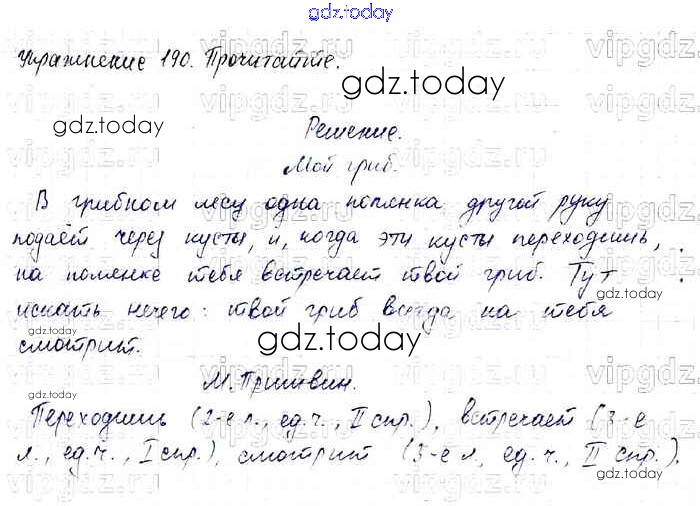 gdz.today
Упражнение 190. Прочитайте.
gdz.today
gdz.today
Решение.
Мой гриб.
В грибном лесу одна полянка другой руку
подаёт через кусты, и, когда эти кусты переходишь,
на полянке тебя встречает твой гриб. Тут
искать нечего: твой гриб всегда на тебя
смотрит.
gdz.today
gdz.today
gdz.today
М. Пришвин.
Переходишь (2-е л., ед.ч., II спр.), встречает (3-е
л., ед.ч., I спр.), смотрит (3-е л, ед.ч., II спр.).
gdz.today
gdz.today
gdz.today